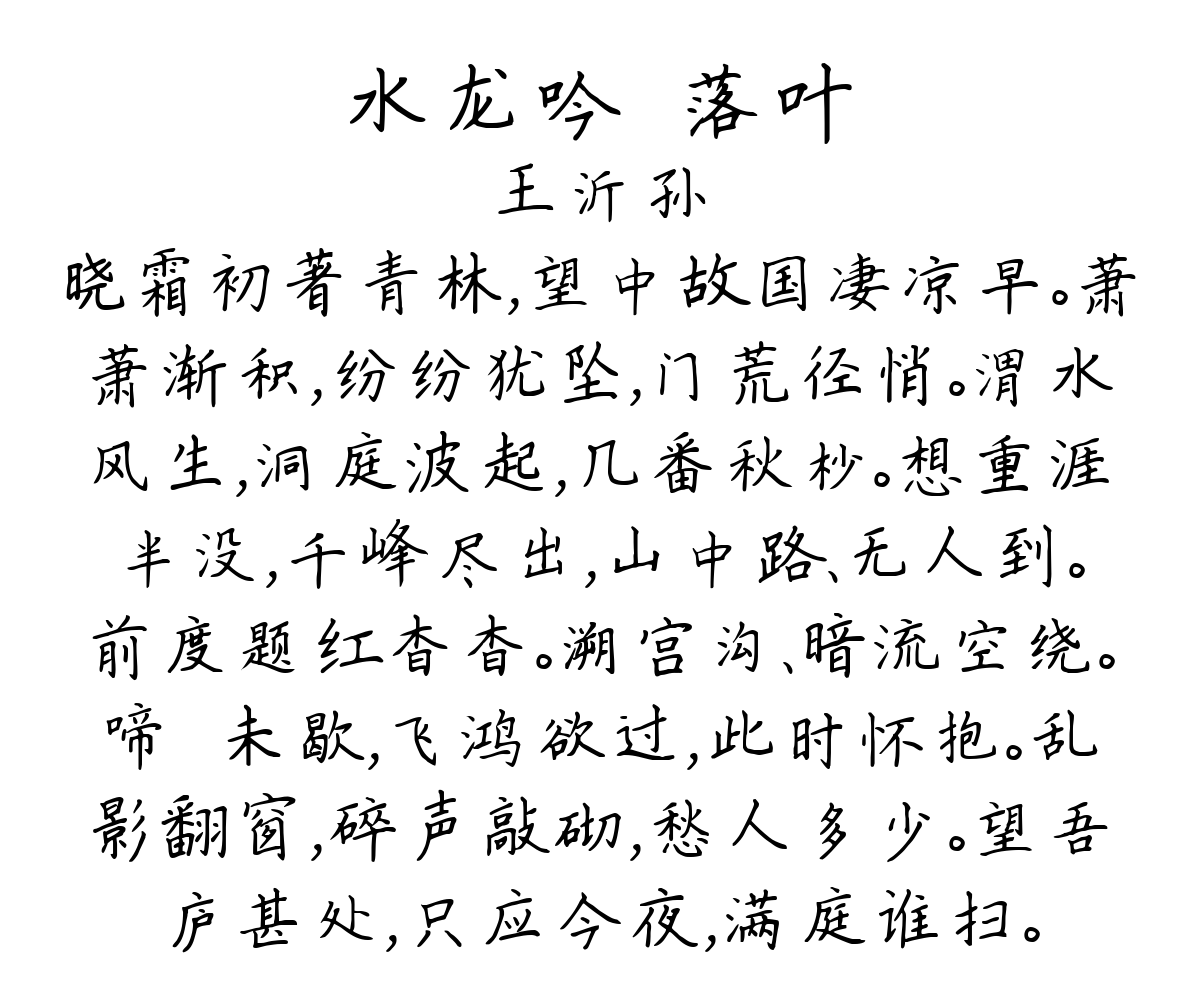 水龙吟 落叶
王沂孙
晓霜初著青林,望中故国凄凉早。萧
萧渐积,纷纷犹坠,门荒径悄。渭水
风生,洞庭波起,几番秋杪。想重涯
半没,千峰尽出,山中路、无人到。
前度题红杳杳。溯宫沟、暗流空绕。
啼 未歇,飞鸿欲过,此时怀抱。乱
影翻窗,碎声敲砌,愁人多少。望吾
庐甚处,只应今夜,满庭谁扫。